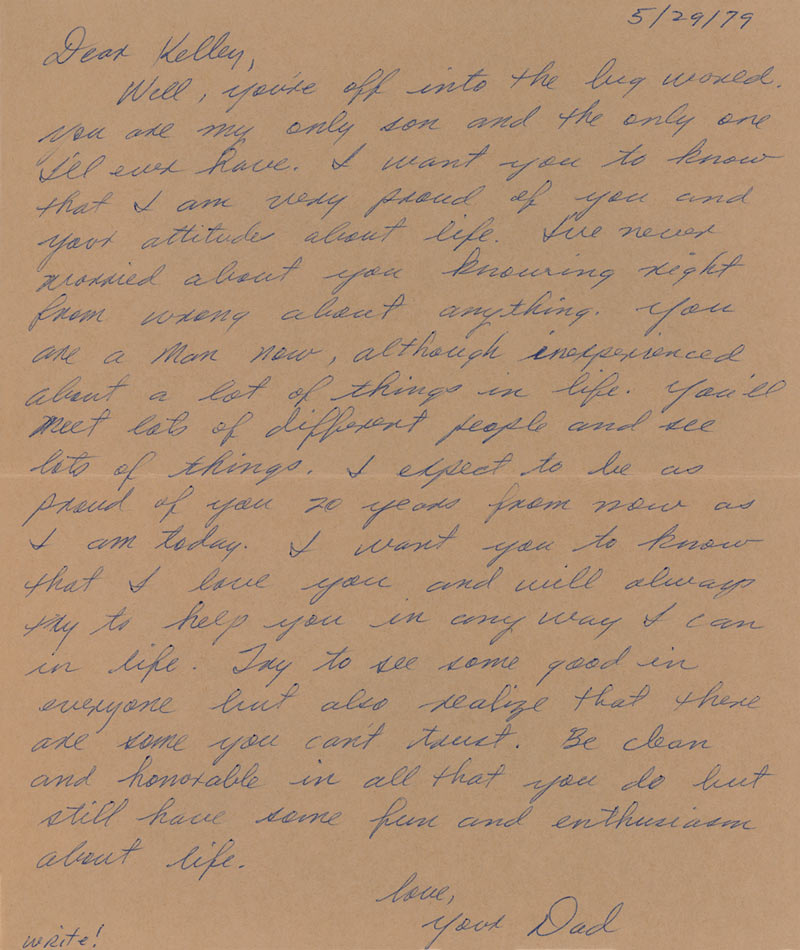 5/29/79
Dear Kelley,
Well, you're off into the big world.
You are my only son and the only one
I'll ever have. I want you to know
that I am very proud of you and
your attitudes about life. I've never
worried about you knowing right
from wrong about anything. You
are a man now, although inexperienced
about a lot of things in life. You'll
meet lots of different people and see
lots of things. I expect to be as
proud of you 20 years from now as
I am today. I want you to know
that I love you and will always
try to help you in any way I can
in life. Try to see some good in
everyone but also realize that there
are some you can't trust. Be clean
and honorable in all that you do but
still have some fun and enthusiasm
about life.
love,
your Dad
write!